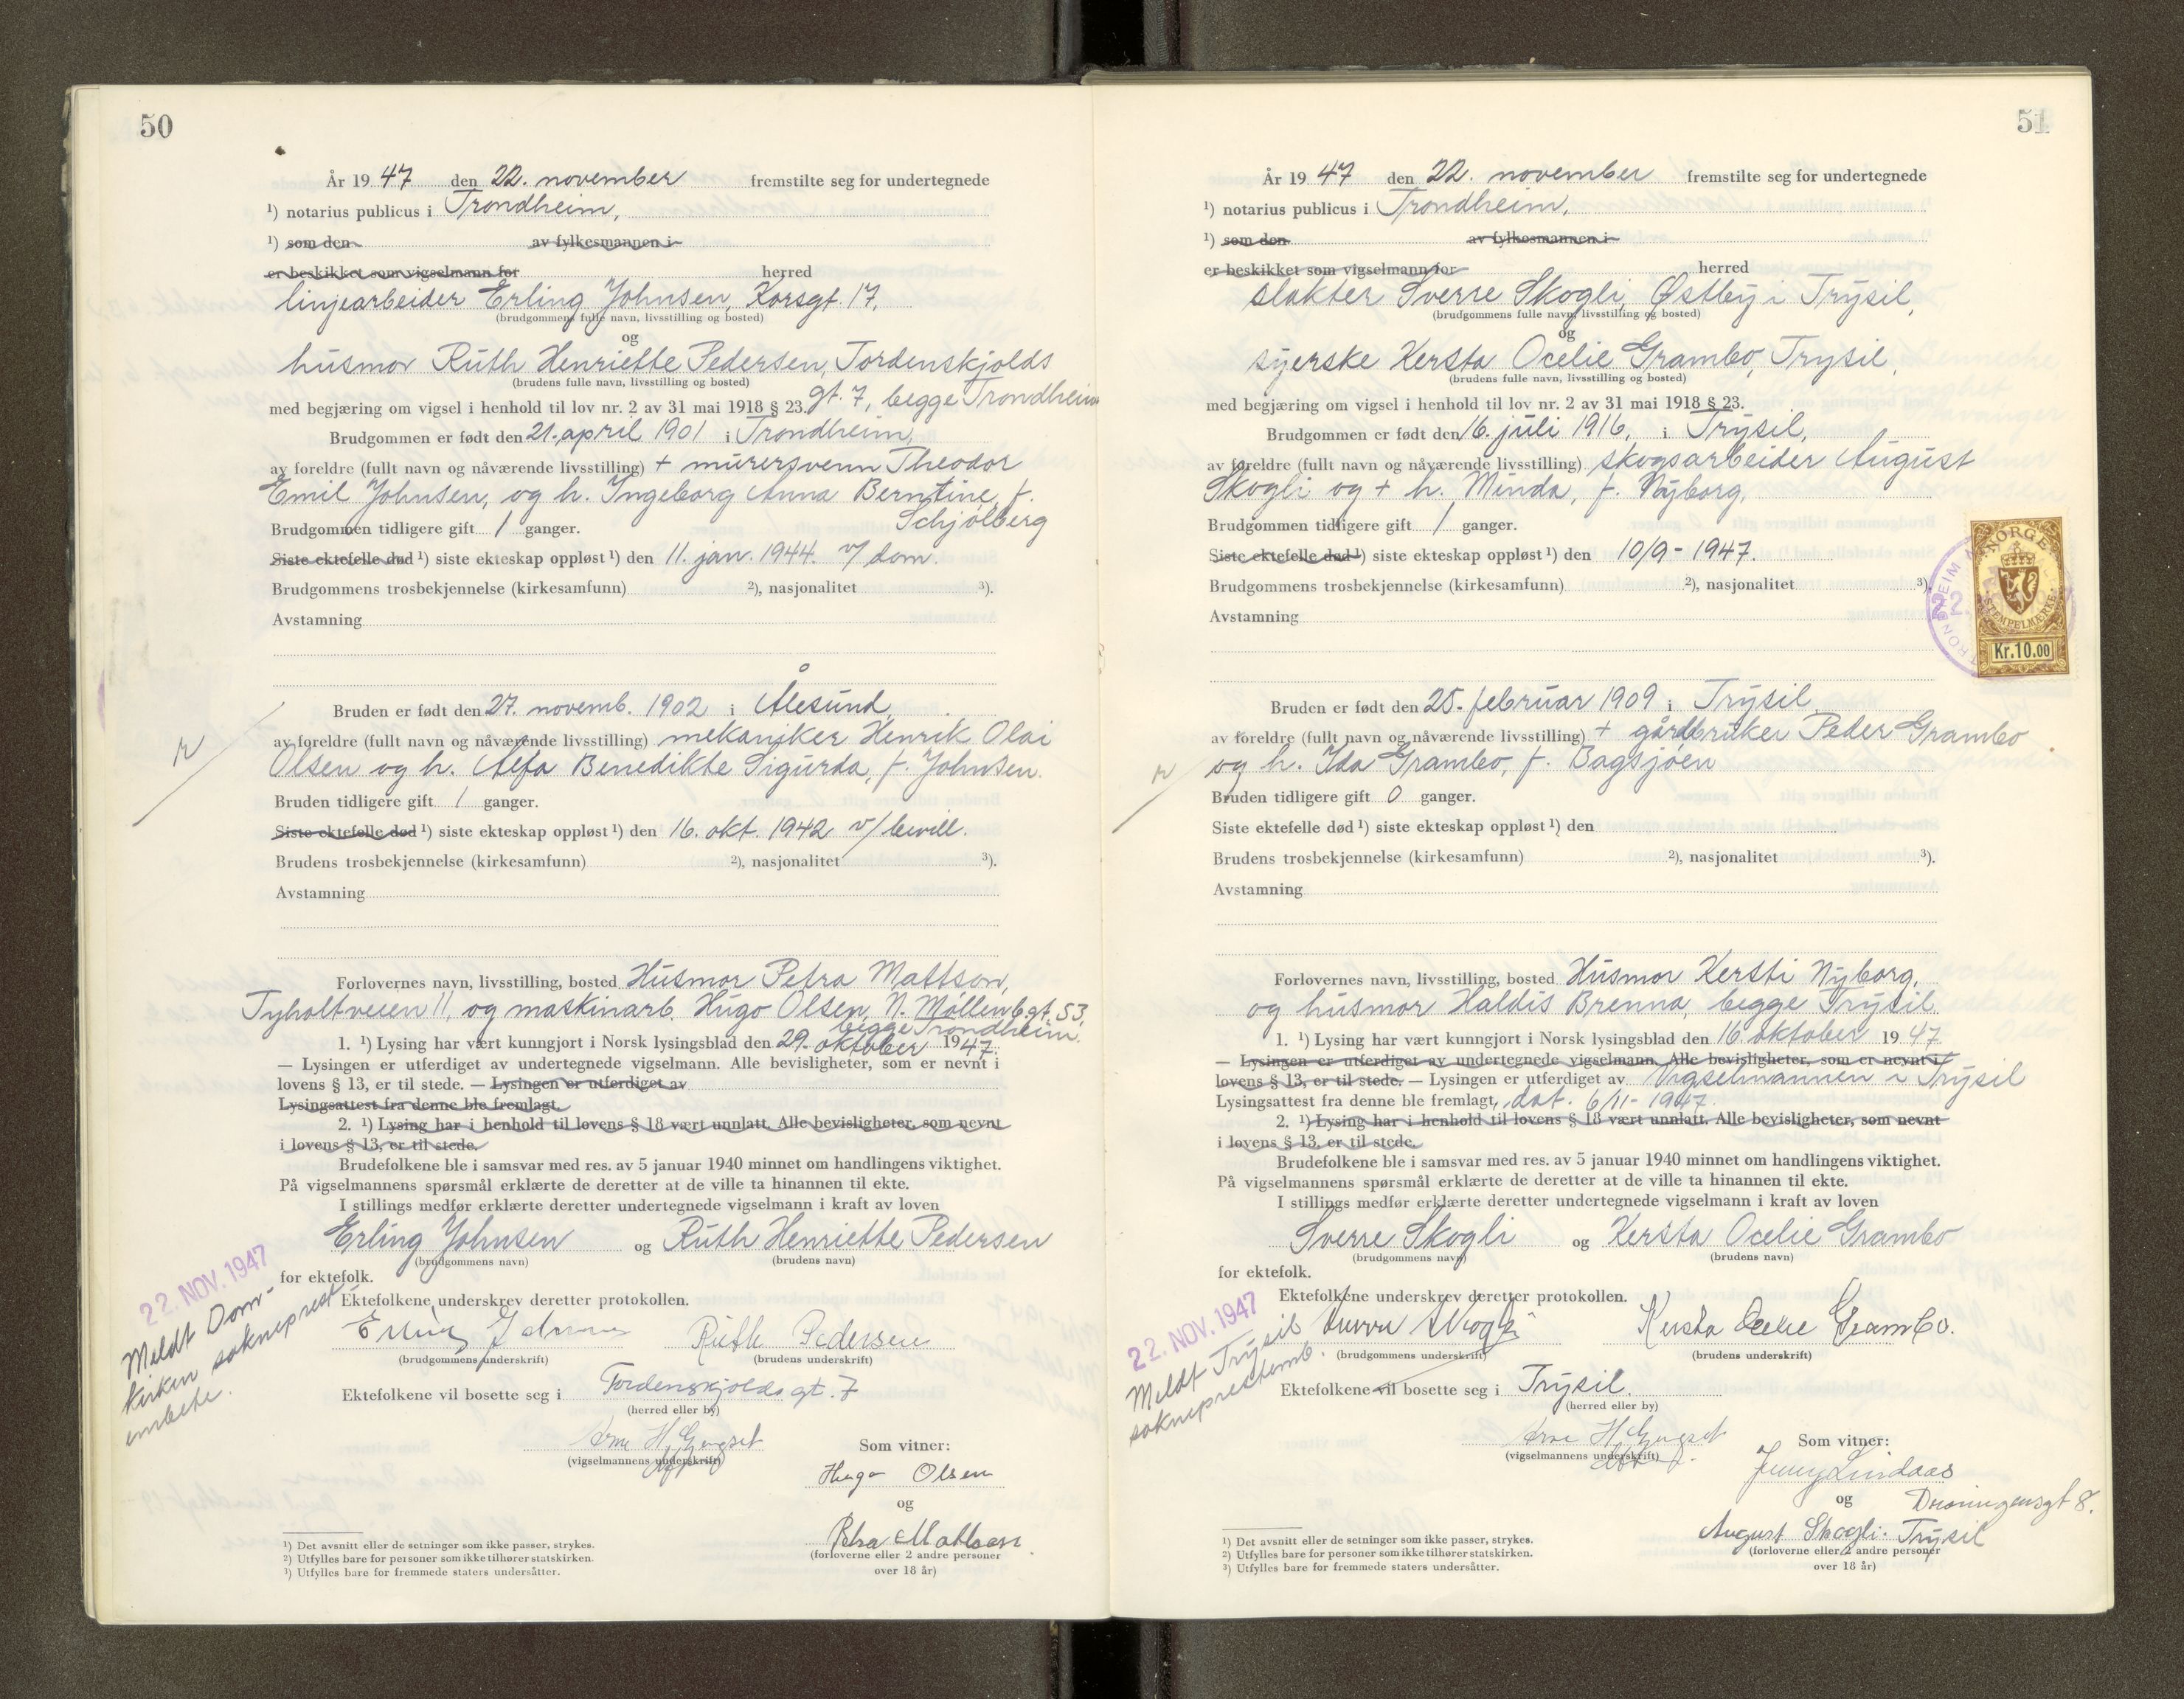 50
År 19 47 den 22. november fremstilte seg for undertegnede
¹) notarius publicus i Trondheim,
¹) som den av fylkesmannen i
er beskikket som vigselmann for herred
linjearbeider Erling Johnsen, Korsgt. 17,
(brudgommens fulle navn, livsstilling og bosted)
og
husmor Ruth Henriette Pedersen, Tordenskjolds
(brudens fulle navn, livsstilling og bosted)
gt. 7, begge Trondheim
med begjæring om vigsel i henhold til lov nr. 2 av 31 mai 1918 § 23.
Brudgommen er født den 21. april 1901 i Trondheim,
av foreldre (fullt navn og nåværende livsstilling) + murersvenn Theodor
Emil Johnsen, og h. Ingeborg Anna Berntine, f.
Schjølberg
Brudgommen tidligere gift 1 ganger.
Siste ektefelle død ¹) siste ekteskap oppløst ¹) den 11. jan. 1944. v/ dom.
Brudgommens trosbekjennelse (kirkesamfunn) ²), nasjonalitet ³).
Avstamning
Bruden er født den 27. novemb. 1902 i Ålesund,
av foreldre (fullt navn og nåværende livsstilling) mekaniker Henrik Olai
Olsen og h. Alfa Benedikte Sigurda, f. Johnsen.
Bruden tidligere gift 1 ganger.
Siste ektefelle død ¹) siste ekteskap oppløst ¹) den 16. okt. 1942 v/ bevill.
Brudens trosbekjennelse (kirkesamfunn) ²), nasjonalitet ³).
Avstamning
Forlovernes navn, livsstilling, bosted Husmor Petra Mattson,
Tyholtveien 11, og maskinarb. Hugo Olsen, N. Møllenbgt. 53,
begge Trondheim.
1. ¹) Lysing har vært kunngjort i Norsk lysingsblad den 29. oktober 1947.
— Lysingen er utferdiget av undertegnede vigselmann. Alle bevisligheter, som er nevnt i
lovens § 13, er til stede. — Lysingen er utferdiget av
Lysingsattest fra denne ble fremlagt.
2. ¹) Lysing har i henhold til lovens § 18 vært unnlatt. Alle bevisligheter, som nevnt
i lovens § 13, er til stede.
Brudefolkene ble i samsvar med res. av 5 januar 1940 minnet om handlingens viktighet.
På vigselmannens spørsmål erklærte de deretter at de ville ta hinannen til ekte.
I stillings medfør erklærte deretter undertegnede vigselmann i kraft av loven
Erling Johnsen og Ruth Henriette Pedersen
(brudgommens navn) (brudens navn)
for ektefolk.
22. NOV. 1947
Meldt Dom-
kirken sokneprest
embete.
Ektefolkene underskrev deretter protokollen.
Erling Johnsen Ruth Pedersen
(brudgommens underskrift) (brudens underskrift)
Ektefolkene vil bosette seg i Tordenskjolds gt. 7
(herred eller by)
Arne H
(vigselmannens underskrift)
Som vitner:
Hugo Olsen
og
Petra Mattson
(forloverne eller 2 andre personer
over 18 år)
¹) Det avsnitt eller de setninger som ikke passer, strykes.
²) Utfylles bare for personer som ikke tilhører statskirken.
³) Utfylles bare for fremmede staters undersåtter.
51
År 19 47 den 22. november fremstilte seg for undertegnede
¹) notarius publicus i Trondheim,
¹) som den av fylkesmannen i
er beskikket som vigselmann for herred
slakter Sverre Skogli, Østby i Trysil,
(brudgommens fulle navn, livsstilling og bosted)
og
syerske Kersta Ocelie Grambo, Trysil,
(brudens fulle navn, livsstilling og bosted)
med begjæring om vigsel i henhold til lov nr. 2 av 31 mai 1918 § 23.
Brudgommen er født den 16. juli 1916, i Trysil,
av foreldre (fullt navn og nåværende livsstilling) skogsarbeider August
Skogli og + h. Minda, f. Nyborg,
Brudgommen tidligere gift 1 ganger.
Siste ektefelle død ¹) siste ekteskap oppløst ¹) den 10/9 - 1947.
Brudgommens trosbekjennelse (kirkesamfunn) ²), nasjonalitet ³).
Avstamning
NORGE
STEMPELMERKE
Kr. 10.00
TRONDHEIM
22.
Bruden er født den 25. februar 1909 i Trysil
av foreldre (fullt navn og nåværende livsstilling) + gårdbruker Peder Grambo
og h. Ida Grambo, f. Bagsjøen
Bruden tidligere gift 0 ganger.
Siste ektefelle død ¹) siste ekteskap oppløst ¹) den
Brudens trosbekjennelse (kirkesamfunn) ²), nasjonalitet ³).
Avstamning
Forlovernes navn, livsstilling, bosted Husmor Kersti Nyborg,
og husmor Haldis Brenna, begge Trysil
1. ¹) Lysing har vært kunngjort i Norsk lysingsblad den 16. oktober 19 47
— Lysingen er utferdiget av undertegnede vigselmann. Alle bevisligheter, som er nevnt i
lovens § 13, er til stede. — Lysingen er utferdiget av Vigselmannen i Trysil
Lysingsattest fra denne ble fremlagt, dat. 6/11 - 1947.
2. ¹) Lysing har i henhold til lovens § 18 vært unnlatt. Alle bevisligheter, som nevnt
i lovens § 13, er til stede.
Brudefolkene ble i samsvar med res. av 5 januar 1940 minnet om handlingens viktighet.
På vigselmannens spørsmål erklærte de deretter at de ville ta hinannen til ekte.
I stillings medfør erklærte deretter undertegnede vigselmann i kraft av loven
Sverre Skogli og Kersta Ocelie Grambo
(brudgommens navn) (brudens navn)
for ektefolk.
22. NOV. 1947
Meldt Trysil
sokneprestemb.
Ektefolkene underskrev deretter protokollen.
Sverre Skogli Kersta Ocelie Grambo.
(brudgommens underskrift) (brudens underskrift)
Ektefolkene vil bosette seg i Trysil.
(herred eller by)
Arne H
(vigselmannens underskrift)
Som vitner:
Jenny Lindaas
og Dronningensgt 8.
August Skogli. Trysil
(forloverne eller 2 andre personer
over 18 år)
¹) Det avsnitt eller de setninger som ikke passer, strykes.
²) Utfylles bare for personer som ikke tilhører statskirken.
³) Utfylles bare for fremmede staters undersåtter.